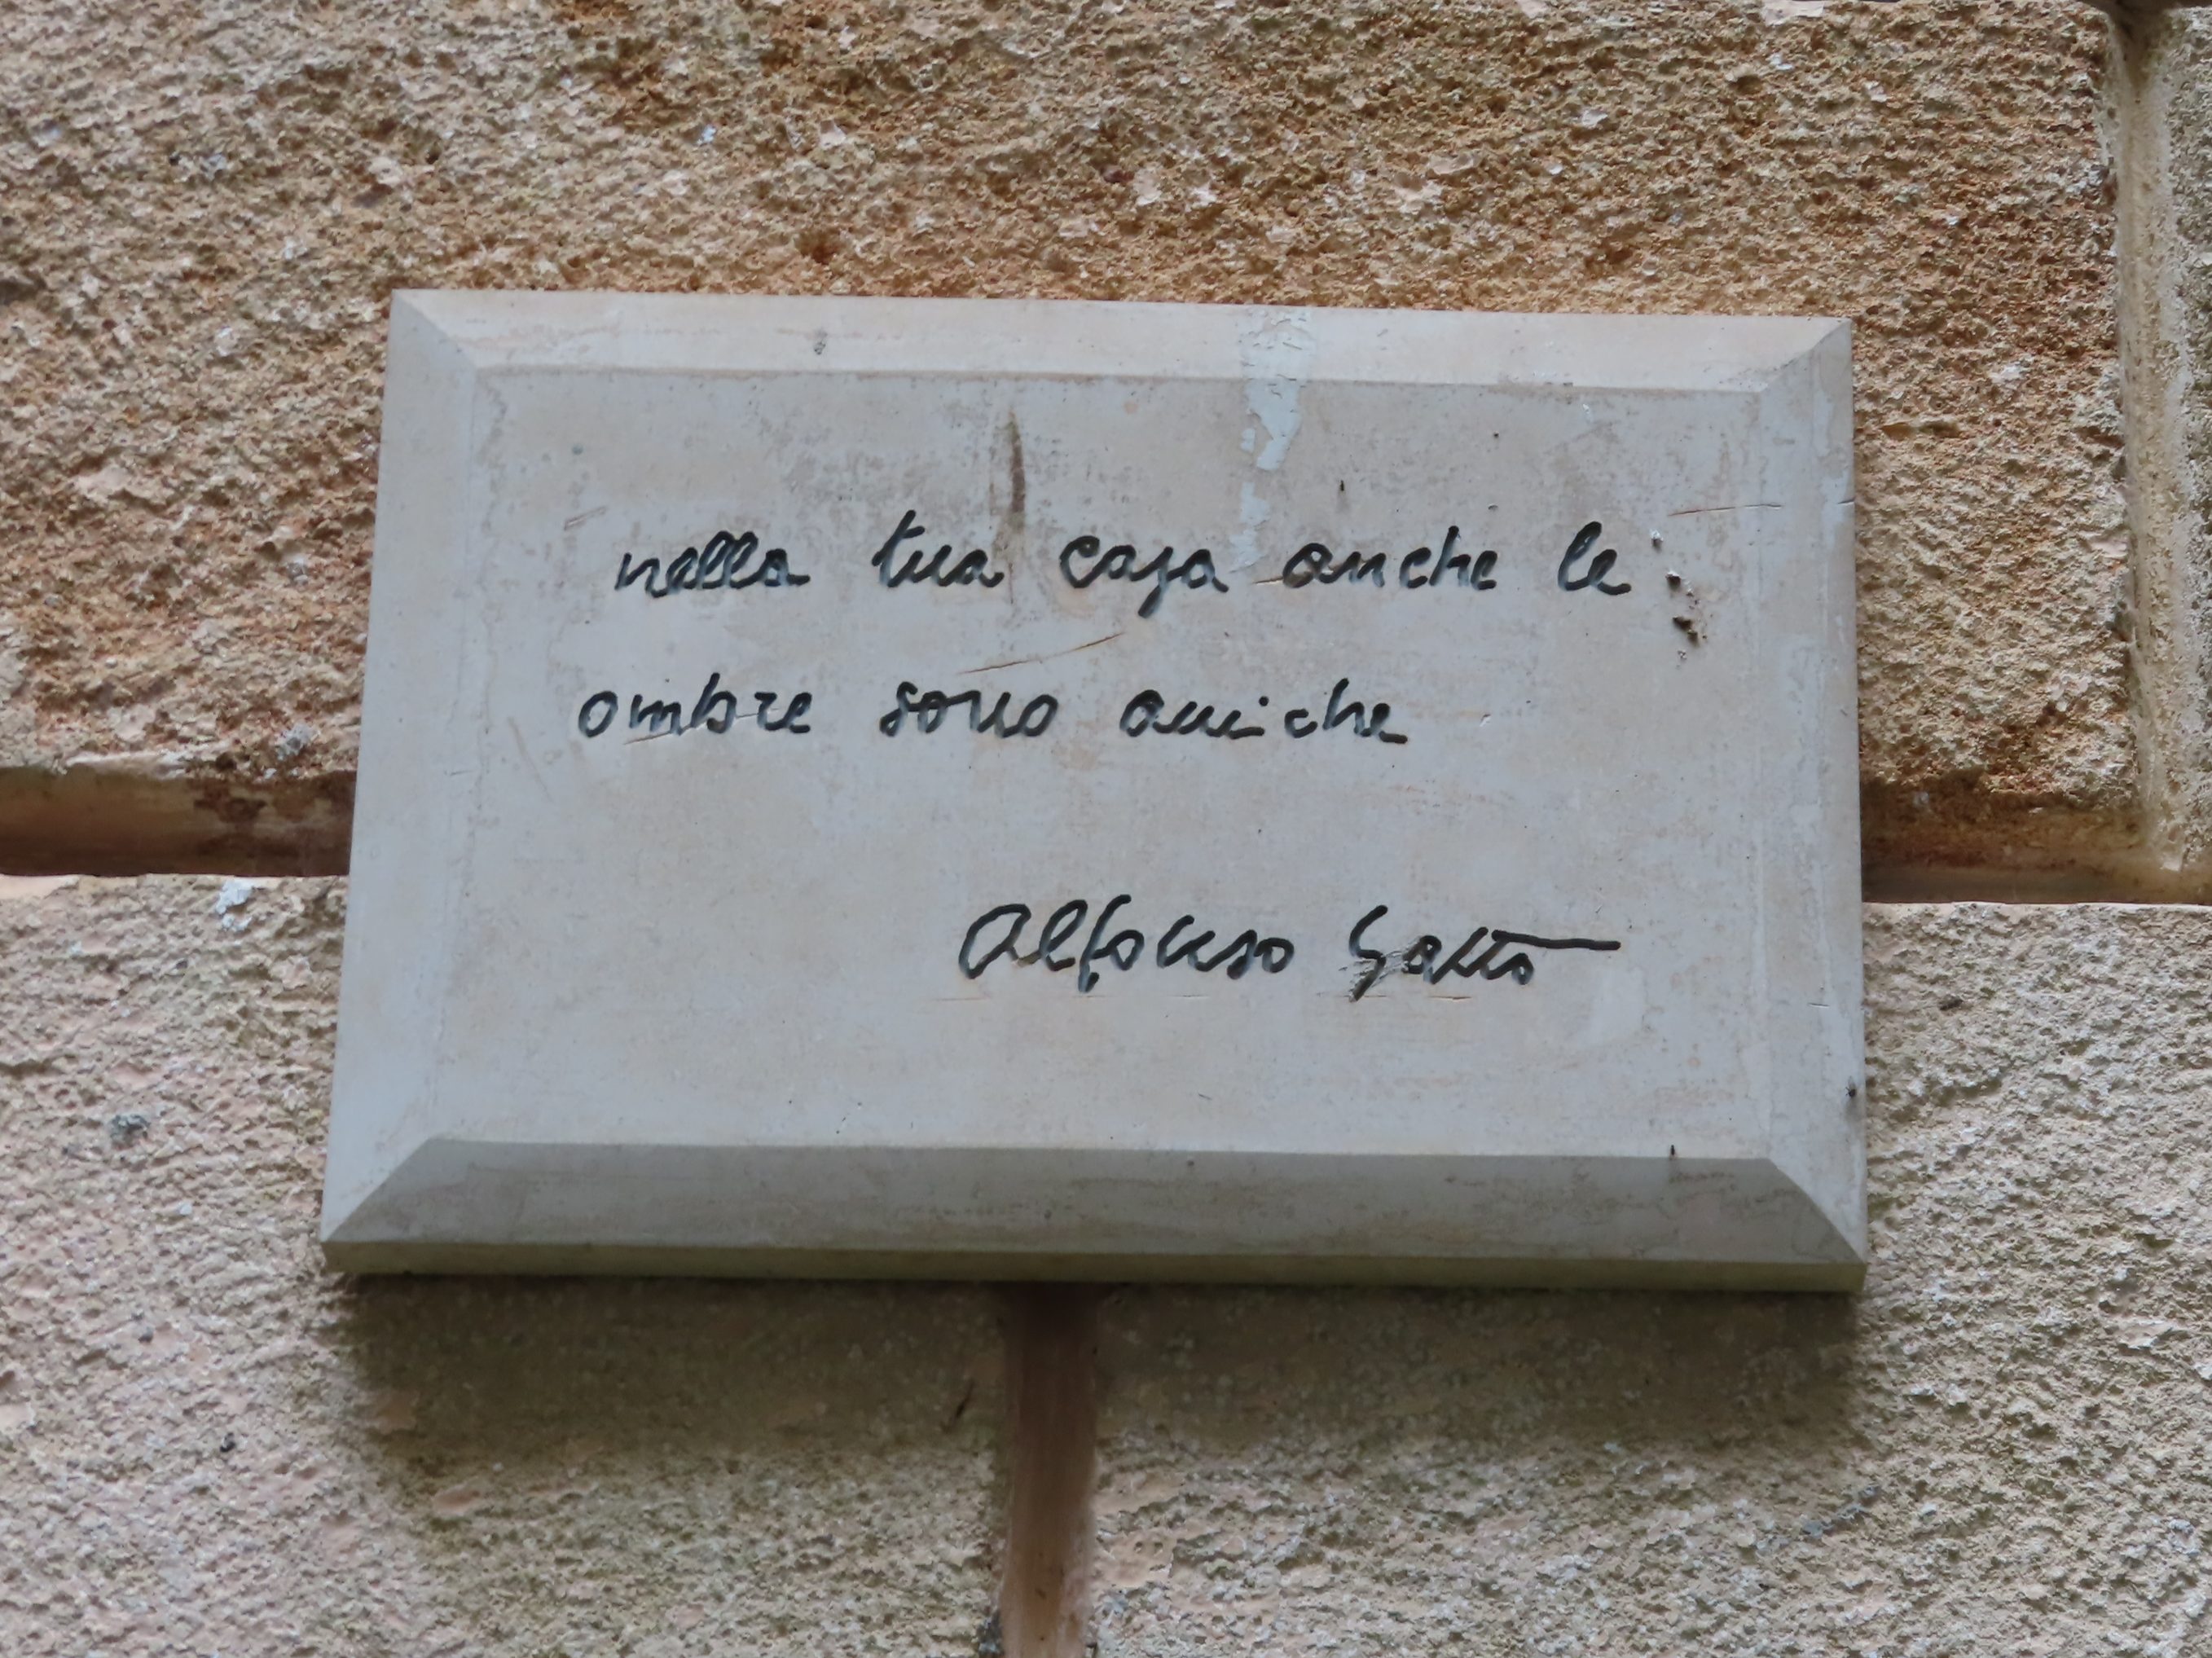 nella tua casa anche le
ombre sono amiche
Alfonso Gatto